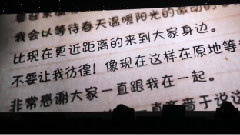 我会以等待春天温暖阳光的激动的
比现在更近距离的来到大家身边。
不要让我彷徨！像现在这样在原地等
非常感谢大家一直跟我在一起。